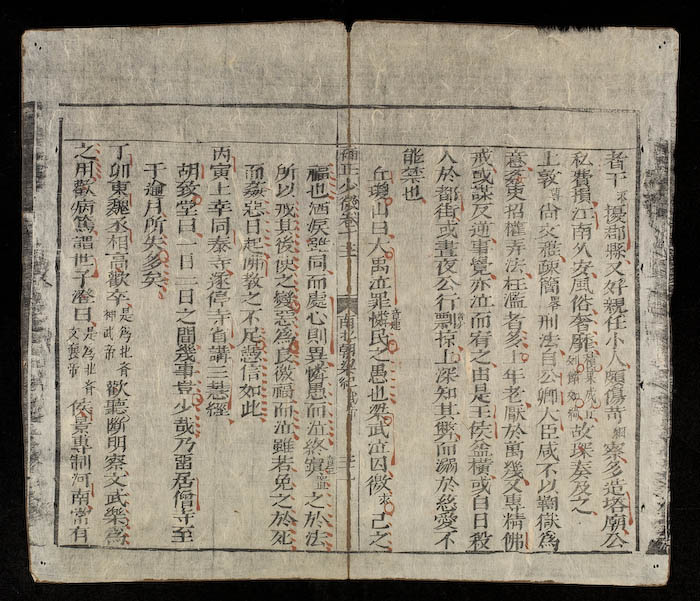 者干求擾郡縣又好親任小人頗傷苛細察多造塔廟公
私費損江南久安風俗奢靡故琛奏及之
上敦尚文雅疎簡畧刑法自公卿大臣咸不以鞫獄為
意姦吏招權弄法枉濫者多上年老厭於萬幾又專精佛
戒或謀反逆事覺亦泣而宥之由是王侯益橫或白日殺
人於都街或晝夜公行剽掠上深知其弊而溺於慈愛不
能禁也
丘瓊山曰大禹泣罪憐民之愚也梁武泣囚徼求己之
補正少微卷十三 南北朝梁紀武帝
福也洒淚雖同而處心則異憐愚而泣終寘之於法
所以戒其後使之變惡為良徼福而泣雖若免之於死
而姦惡日起佛教之不足憑信如此
丙寅上幸同泰寺遂停寺省講三慧經
胡致堂曰一日二日之間幾事豈少哉乃畱居僧寺至
于逾月所失多矣
丁卯東魏丞相高歡卒是為北齊神武帝歡聽斷明察文武樂為
之用歡病篤謂世子澄曰是為北齊文襄帝侯景專制河南常有